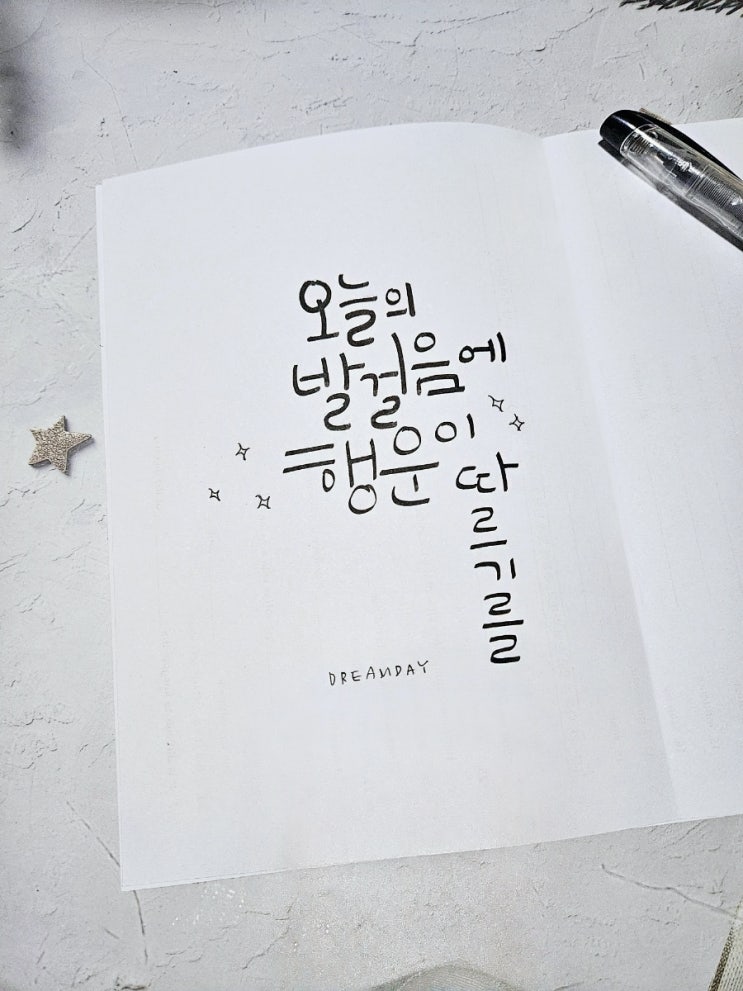 오늘의
발걸음에
행운이
따
르
기
를
DREAMDAY